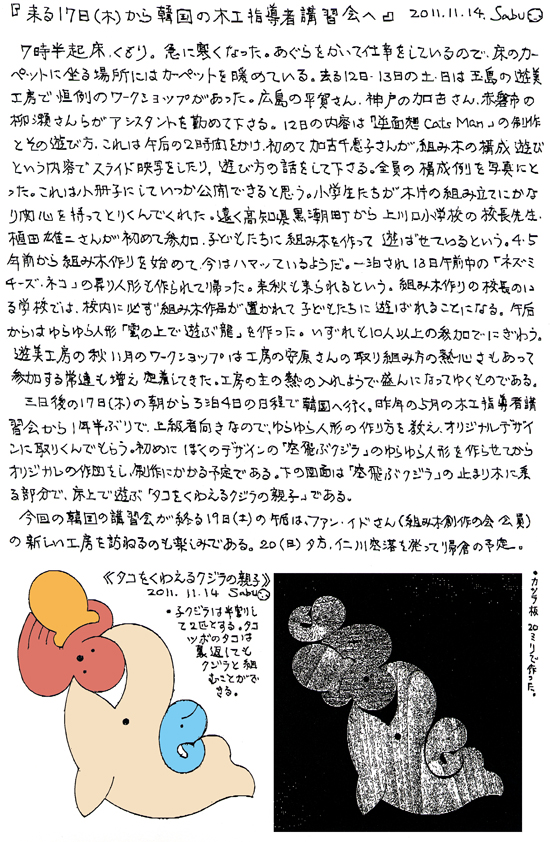 『来る17日(木)から韓国の木工指導者講習会へ』 2011.11.14. Sabu
7時半起床、くもり。急に寒くなった。あぐらをかいて仕事をしているので、床のカー
ペットに坐る場所にはカーペットを暖めている。去る12日・13日の土・日は玉島の遊美
工房で恒例のワークショップがあった。広島の平賀さん、神戸の加古さん、赤磐市の
柳瀬さんらがアシスタントを勤めて下さる。12日の内容は『逆面想 Cats Man』の制作
とその遊び方、これは午后の2時間をかけ、初めて加古千恵子さんが、組み木の構成遊び
という内容でスライド映写をしたり、遊び方の話をして下さる。全員の構成例を写真にと
った。これは小冊子にしていつか公開できると思う。小学生たちが木片の組み立てにかな
り関心を持ってとりくんでくれた。遠く高知県黒潮町から上川口小学校の校長先生、
植田雄二さんが初めて参加、子どもたちに組み木を作って遊ばせているという。4・5
年前から組み木作りを始めて、今はハマっているようだ。一泊され13日午前中の「ネズミ
チーズ・ネコ」の昇り人形も作られて帰った。来秋も来られるという。組み木作りの校長のい
る学校では、校内に必ず組み木作品が置かれて子どもたちに遊ばれることになる。午后
からはゆらゆら人形「雲の上で遊ぶ龍」を作った。いずれも10人以上の参加でにぎわう。
遊美工房の秋11月のワークショップは工房の安原さんの取り組み方の熱心さもあって
参加する常連も増え定着してきた。工房の主の熱の入れようで盛んになってゆくものである。
三日後の17日(木)の朝から3泊4日の日程で韓国へ行く。昨年の5月の木工指導者講
習会から1年半ぶりで、上級者向きなので、ゆらゆら人形の作り方を教え、オリジナルデザイ
ンに取りくんでもらう。初めにぼくのデザインの「空飛ぶクジラ」のゆらゆら人形を作らせてから
オリジナルの作図をし、制作にかかる予定である。下の図面は「空飛ぶクジラ」の止まり木に乗
る部分で、床上で遊ぶ「タコをくわえるクジラの親子」である。
今回の韓国の講習会が終る19日(土)の午后は、ファン・イドさん(組み木創作の会会員)
の新しい工房を訪ねるのも楽しみである。20(日)夕方、仁川空港を発って帰倉の予定。
《タコをくわえるクジラの親子》
2011.11.14 Sabu
・子クジラは半割りし
て2匹とする。タコ
ツボのタコは
裏返しても
クジラと組
むことがで
きる。
・カツラ板 20ミリで作った。